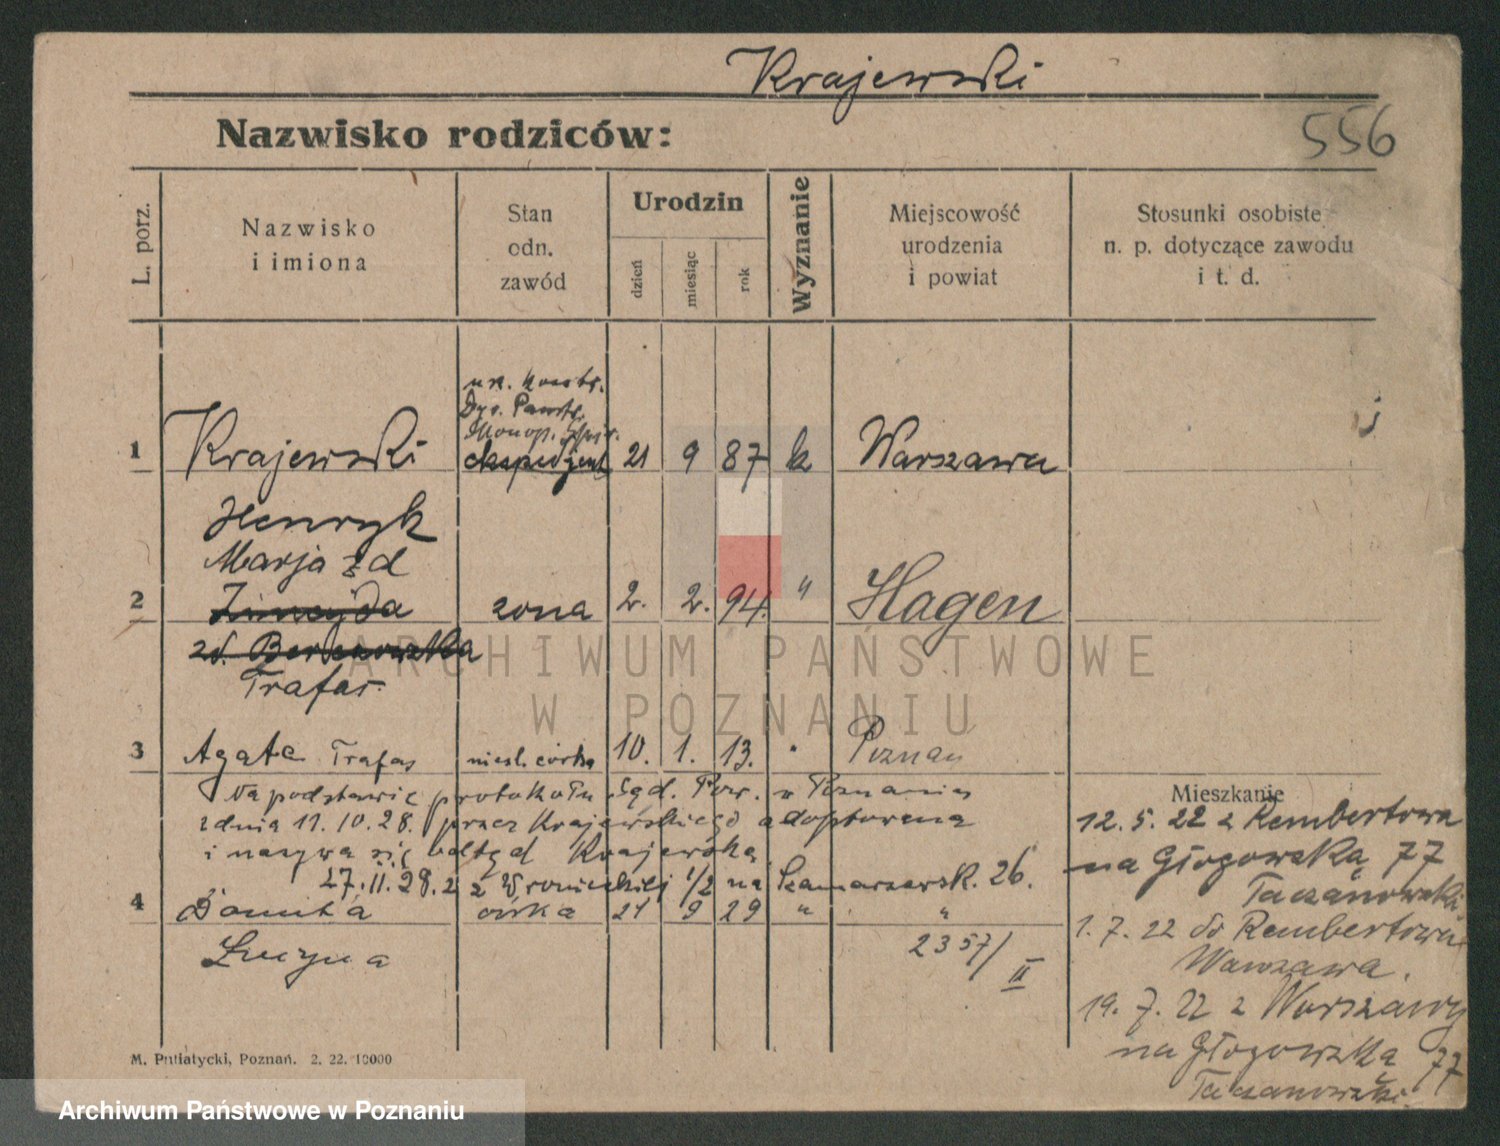 Krajewski
Nazwisko rodziców:
556
L. porz.
Nazwisko
i imiona
Stan
odn.
zawód
Urodzin
dzień
miesiąc
rok
Wyznanie
Miejscowość
urodzenia
i powiat
Stosunki osobiste
n. p. dotyczące zawodu
i t. d.
urz. kontr.
Dyr. Państw.
Monop. Spir.
1 Krajewski ekspedjent 21 9 87 k Warszawa
Henryk
Marja zd
2 żona 2. 2. 94. " Hagen
zd. Berkowska
Trafas
3 Agata Trafas nieśl. córka 10. 1. 13. " Poznań
Na podstawie protokołu Sąd. Pow. w Poznaniu
z dnia 11. 10. 28. przez Krajewskiego adoptowana
i nazywa się odtąd Krajewska
27. 11. 28. z Wronieckiej 1/2 na Szamarzewsk. 26.
4 Danuta córka 21 9 29 " "
Lucyna
2357/II
Mieszkanie
12. 5. 22 z Rembertowa
na Głogowską 77
Taczanowski
1. 7. 22 do Rembertowa
Warszawa.
19. 7. 22 z Warszawy
na Głogowską 77
Taczanowski.
M. Putiatycki, Poznań. 2. 22. 10000
ARCHIWUM PAŃSTWOWE
W POZNANIU
Archiwum Państwowe w Poznaniu